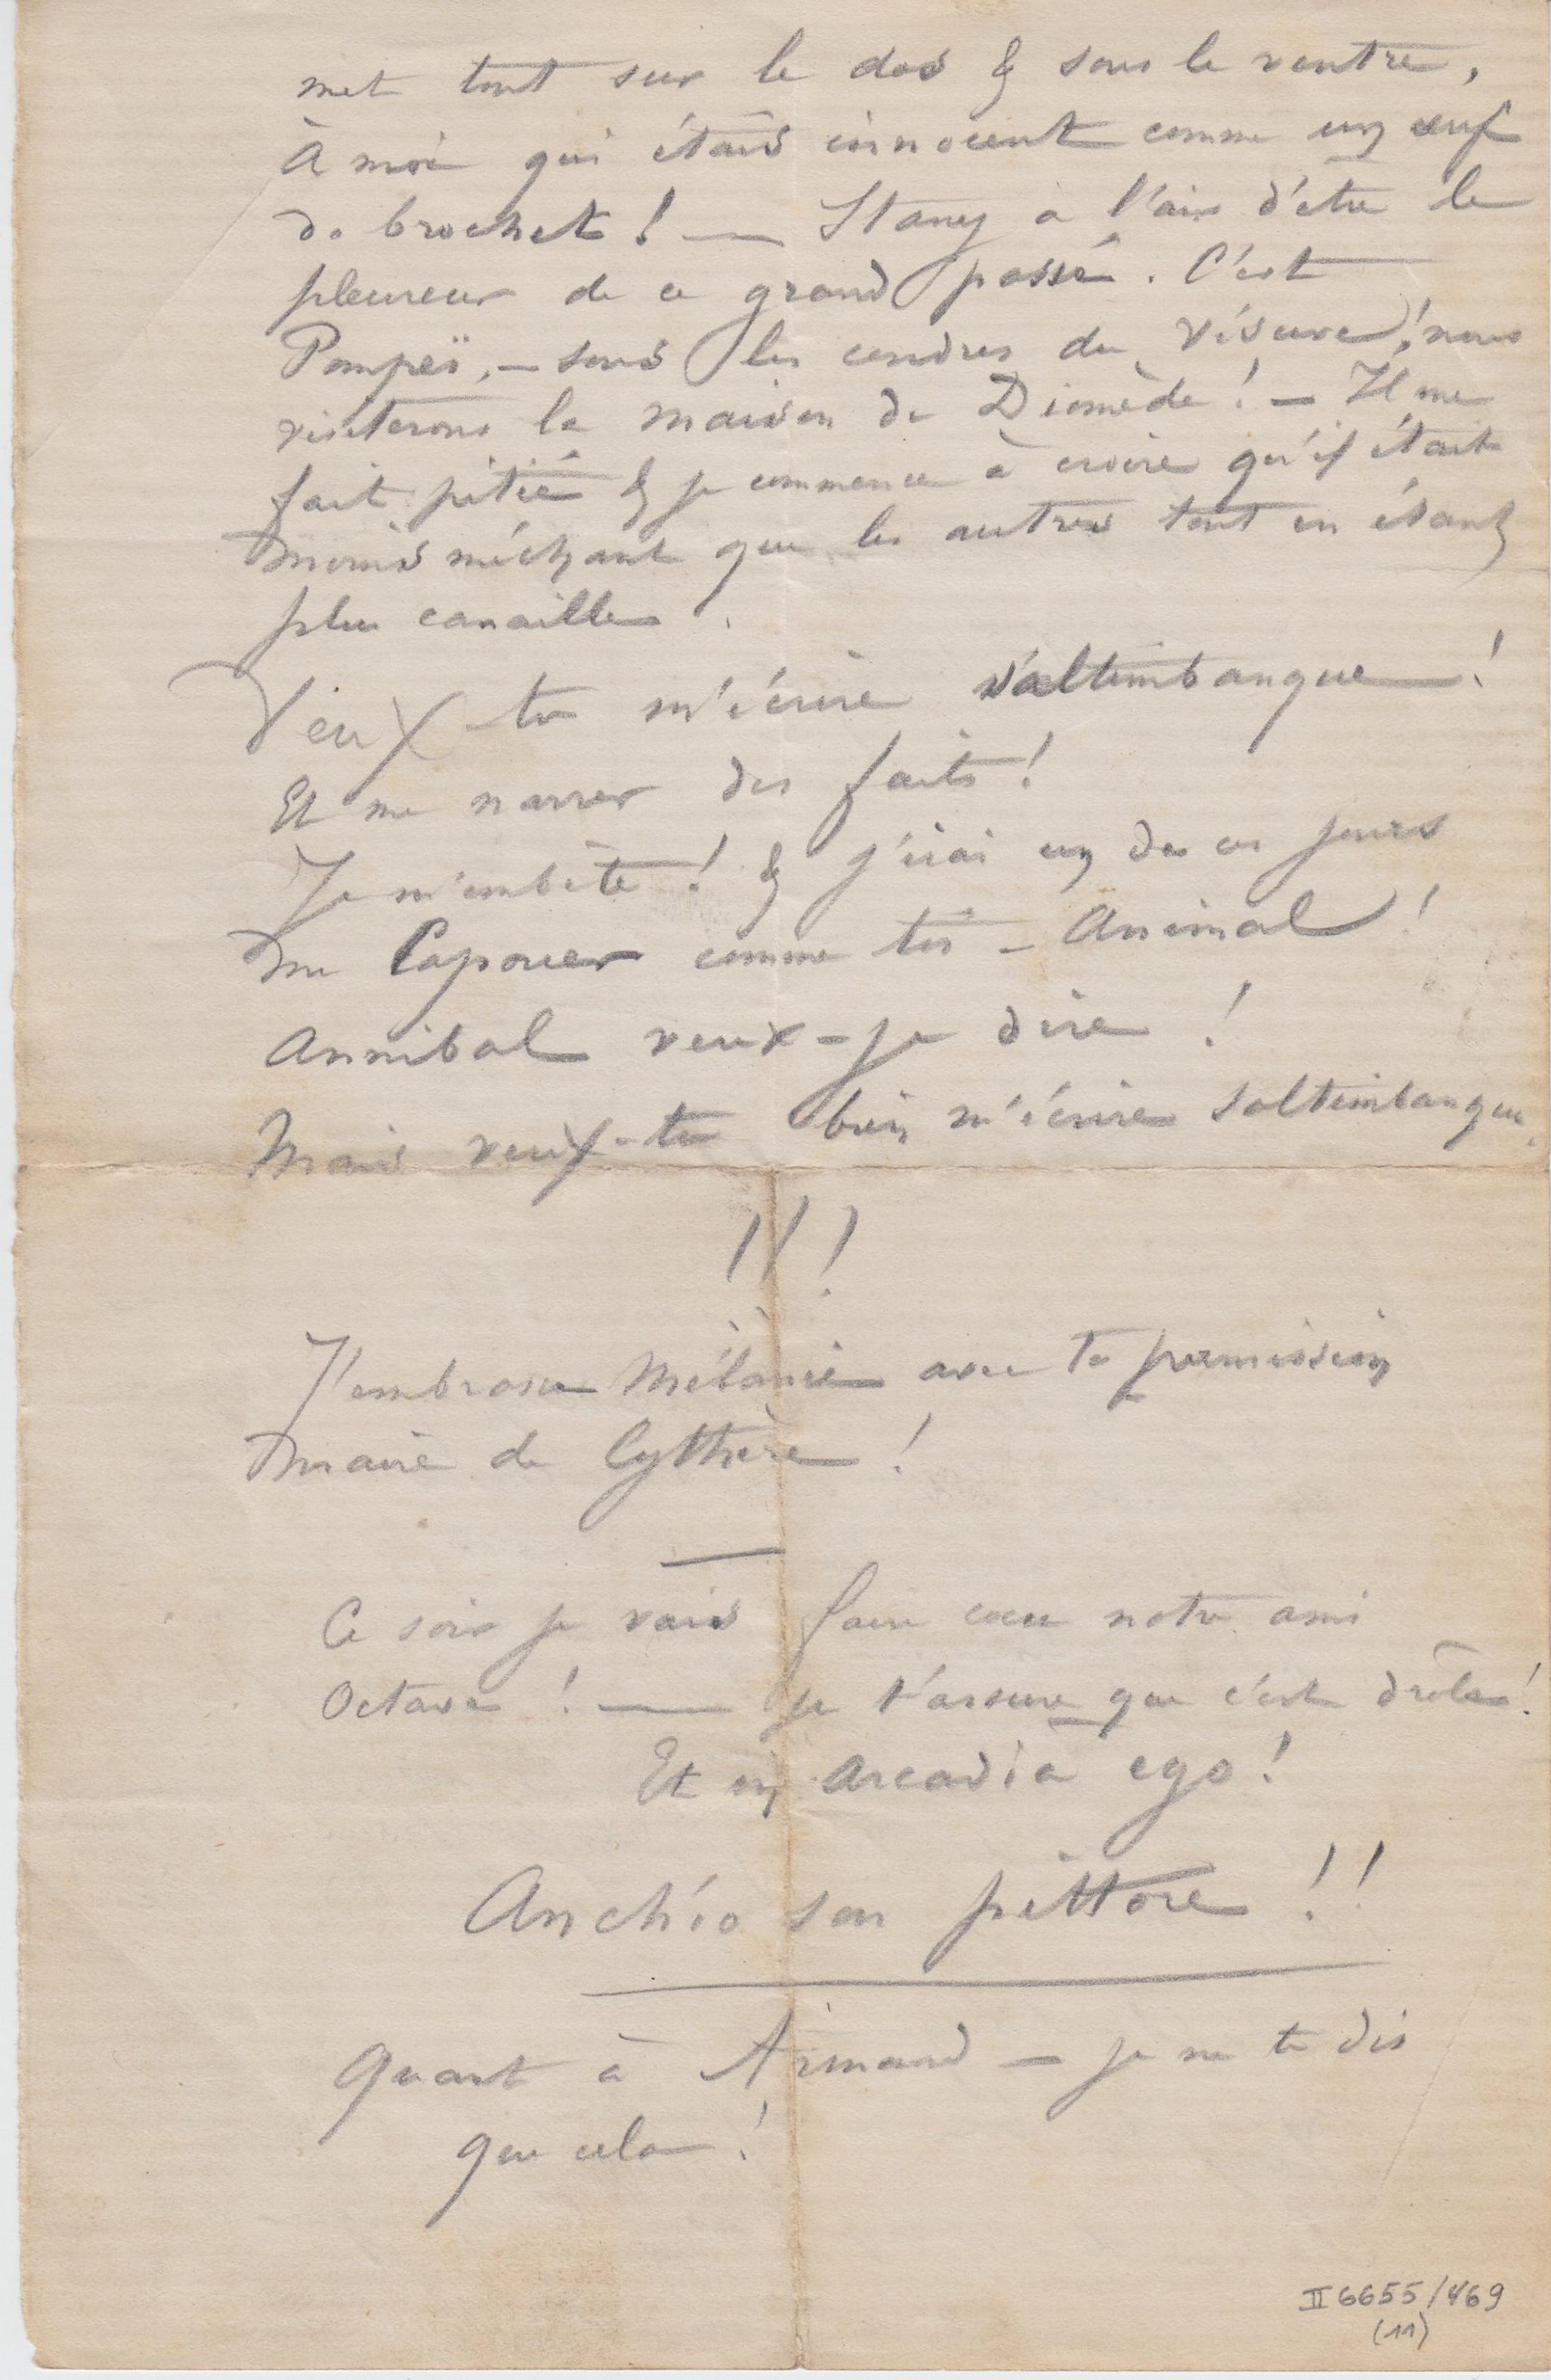 met tout sur le dos & sous le ventre,
à moi qui étais innocent comme un œuf
de brochet ! — Stany a l'air d'être le
pleureur de ce grand passé. C'est
Pompeï, — sous les cendres du Vésuve ! nous
visiterons la maison de Diomède ! — Il me
fait pitié & je commence à croire qu'il était
moins méchant que les autres tout en étant
plus canaille.
Veux-tu m'écrire saltimbanque !
Et me narrer des faits !
Je m'embète ! & j'irai un de ces jours
me Capouer comme toi – Animal !
Annibal veux-je dire !
Mais veux-tu bien m'écrire saltimbanque
!!!
J'embrasse Mélanie avec ta permission
Maire de Cythère !
Ce soir je vais faire cocu notre ami
Octave ! — je t'assure que c'est drôle !
Et in Arcadia ego !
Anch'io son pittore !!
Quant à Armand — je ne te dis
que cela !
II 6655/469
(11)